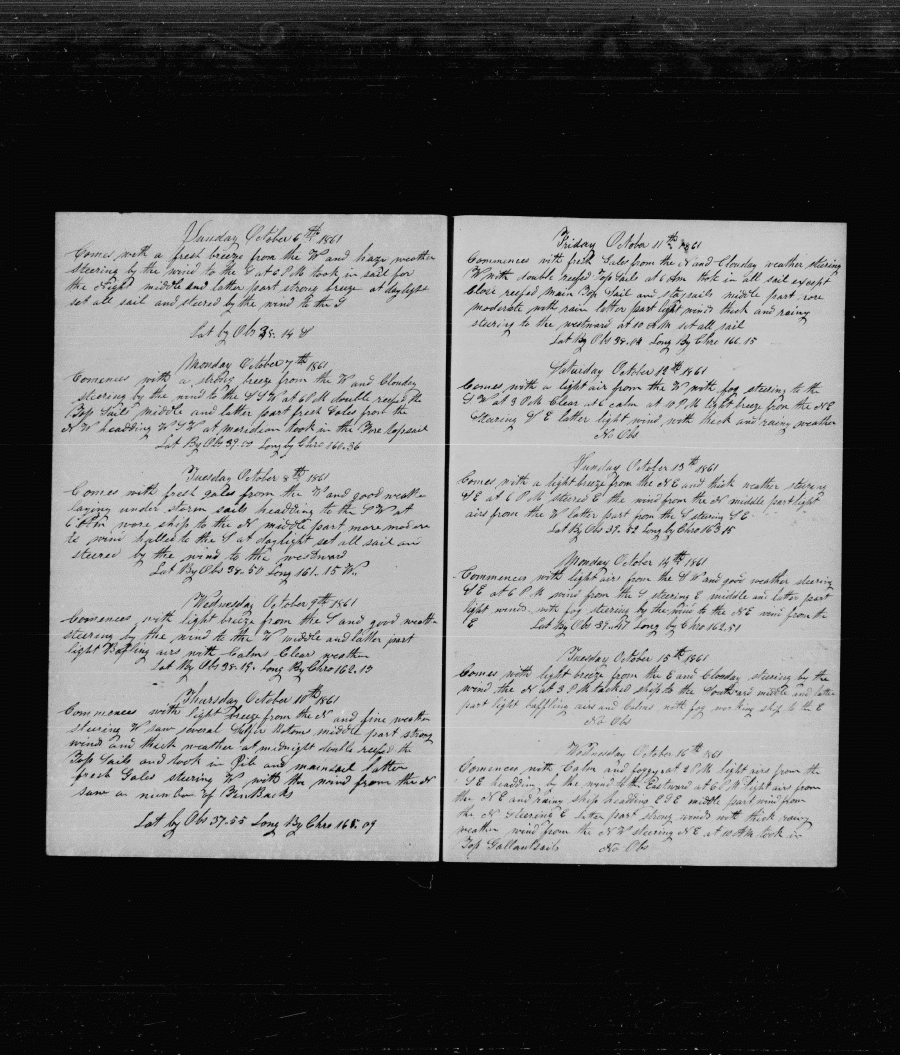 Sunday October 6th 1861
Comes with a fresh breeze from the W and haze weather
steering by the wind to the at 6 P M took in sail for
the Night middle and latter part strong breeze at daylight
set all sail and steered by the wind to the
Lat by Obs 38. 14
Monday October 7th 1861
Comences with a strong breeze from the W and Clouday
steering by the wind to the S S W at 6 P M double reefed the
Top Sails middle and latter part fresh Gales from the
N W headding W S W at meridian took in the Fore topsail
Lat By Obs 39. Long by Chro 160.36
Tuesday October 8th 1861
Comes with fresh gales from the W and good weathe
laying under storm sails headding to the S W at
6 P M wore ship to the N middle part more modera
te wind halled to the S at daylight set all sail an
steered by the wind to the westward
Lat By Obs 38.50 Long 161.15 W.
Wednesday October 9th 1861
Comences with light breeze from the S and good weath
steering by the wind to the W middle and latter part
light Baffling airs with Calms Clear weather
Lat By Obs 38.19. Long By Chro 162.13
Thursday October 10th 1861
Commences with light breeze from the N and fine weathe
stearing W saw several Botoms middle part strong
wind and thick weather at midnight double reefed the
Top Sails and took in Gib and mainsail latter
fresh Gales steering W with the wind from the N
saw a number of FinBacks
Lat by Obs 37.55 Long By Chro 165.09
Friday October 11th 1861
Commences with fresh Gales from the N and Clouday weather steering
W with double reefed Top Sails at 6 Am took in all sail except
Close reefed Main Top Sail and staysails middle part more
moderate with rain latter part light winds thick and rainy
steering to the westward at 10 A M set all sail
Lat By Obs 38.04 Long By Chro 166.15
Saturday October 12th 1861
Comes with a light air from the W with fog steering to the
S W at 3 P M Clear at 6 calm at 10 P M light breeze from the N E
Steering S E latter light wind with thick and rainy weather
No Obs
Sunday October 13th 1861
Comes with a light breeze from the N E and thick weather steering
S E at 6 P M steered E the wind from the N middle part light
airs from the W latter part from the S steering S E
Lat By Obs 37.52 Long by Chro 163 15
Monday October 14th 1861
Commences with light airs from the S W and good weather stearing
S E at 6 P M wind from the S steering E middle and latter part
light winds with fog steering by the wind to the N E wind from the
E Lat By Obs 37.47 Long by Chro 162.51
Tuesday October 15th 1861
Comes with light breeze from the E and Clouday steering by the
wind the N at 5 P M tacked ship to the Southward middle and latter
part light baffling airs and Calms with fog working ship to the E
No Obs
Wednesday October 16th 1861
Comences with Calm and foggy at 2 P M light airs from the
S E headding by the wind to the Eastward at 6 P M light airs from
the N E and rainy ship headding E S E middle part wind from
the N steering E latter part strong winds with thick rainy
weather wind from the N W steering N E at 10 A M took in
Top Gallantsails No Obs